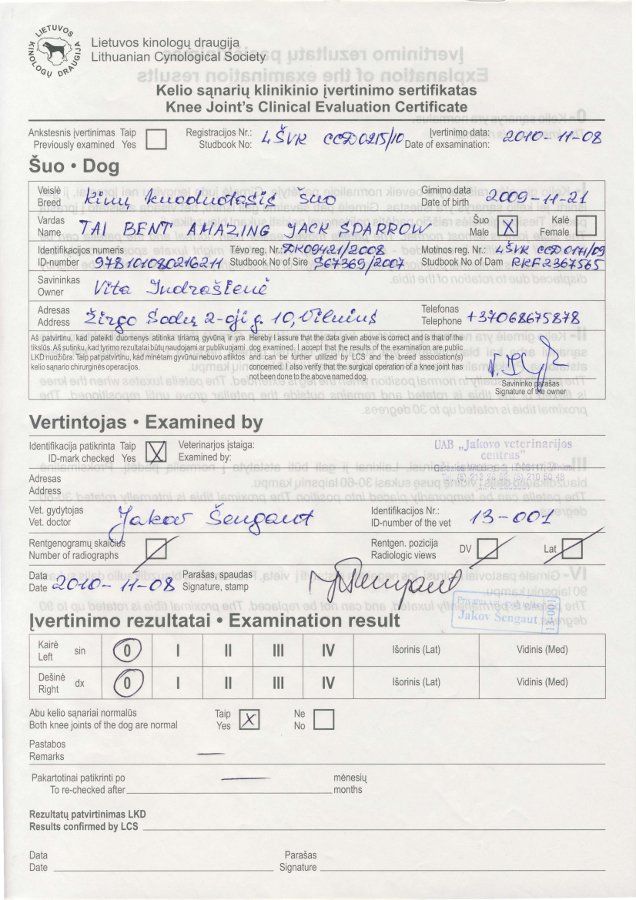 LIETUVOS KINOLOGŲ DRAUGIJA
Lietuvos kinologų draugija
Lithuanian Cynological Society
Kelio sąnarių klinikinio įvertinimo sertifikatas
Knee Joint's Clinical Evaluation Certificate
Ankstesnis įvertinimas Taip Registracijos Nr.: 4ŠVK CCD0215/10 Įvertinimo data: 2010-11-08
Previously examined Yes Studbook No: Date of exsamination:
Šuo • Dog
Veislė Kinų kuoduotasis šuo Gimimo data 2009-11-21
Breed Date of birth
Vardas TAI BENT AMAZING JACK SPARROW Šuo X Kalė
Name Male Female
Identifikacijos numeris Tėvo reg. Nr.: DK09421/2008 Motinos reg. Nr.: 4ŠVK CCD0141/09
ID-number 978101080216211 Studbook No of Sire S67369/2007 Studbook No of Dam RKF2367565
Savininkas Vita Indrašienė
Owner
Adresas Žirgo Sodų 2-oji g. 10, Vilnius Telefonas +37068675878
Address Telephone
Aš patvirtinu, kad pateikti duomenys atitinka tiriamą gyvūną ir yra Hereby I assure that the data given above is correct and is that of the
tikslūs. Aš sutinku, kad tyrimo rezultatai būtų naudojami ar publikuojami dog examined. I accept that the results of the examination are public
LKD nuožiūra. Taip pat patvirtinu, kad minėtam gyvūnui nebuvo atliktos and can be further utilized by LCS and the breed association(s)
kelio sąnario chirurginės operacijos. concerned. I also verify that the surgical operation of a knee joint has
not been done to the above named dog.
Savininko parašas
Signature of the owner
Vertintojas • Examined by
Identifikacija patikrinta Taip X Veterinarijos įstaiga: UAB „Jakovo veterinarijos
ID-mark checked Yes Examined by: centras"
Adresas
Address
Vet. gydytojas Jakov Šengaut Identifikacijos Nr.: 13-001
Vet. doctor ID-number of the vet
Rentgenogramų skaičius Rentgen. pozicija DV Lat
Number of radiographs Radiologic views
Data 2010-11-08 Parašas, spaudas
Date Signature, stamp
Jakov Šengaut
13-001
Įvertinimo rezultatai • Examination result
Kairė sin 0 I II III IV Išorinis (Lat) Vidinis (Med)
Left
Dešinė dx 0 I II III IV Išorinis (Lat) Vidinis (Med)
Right
Abu kelio sąnariai normalūs Taip X Ne
Both knee joints of the dog are normal Yes No
Pastabos
Remarks —
Pakartotinai patikrinti po — mėnesių
To re-checked after months
Rezultatų patvirtinimas LKD
Results confirmed by LCS
Data Parašas
Date Signature